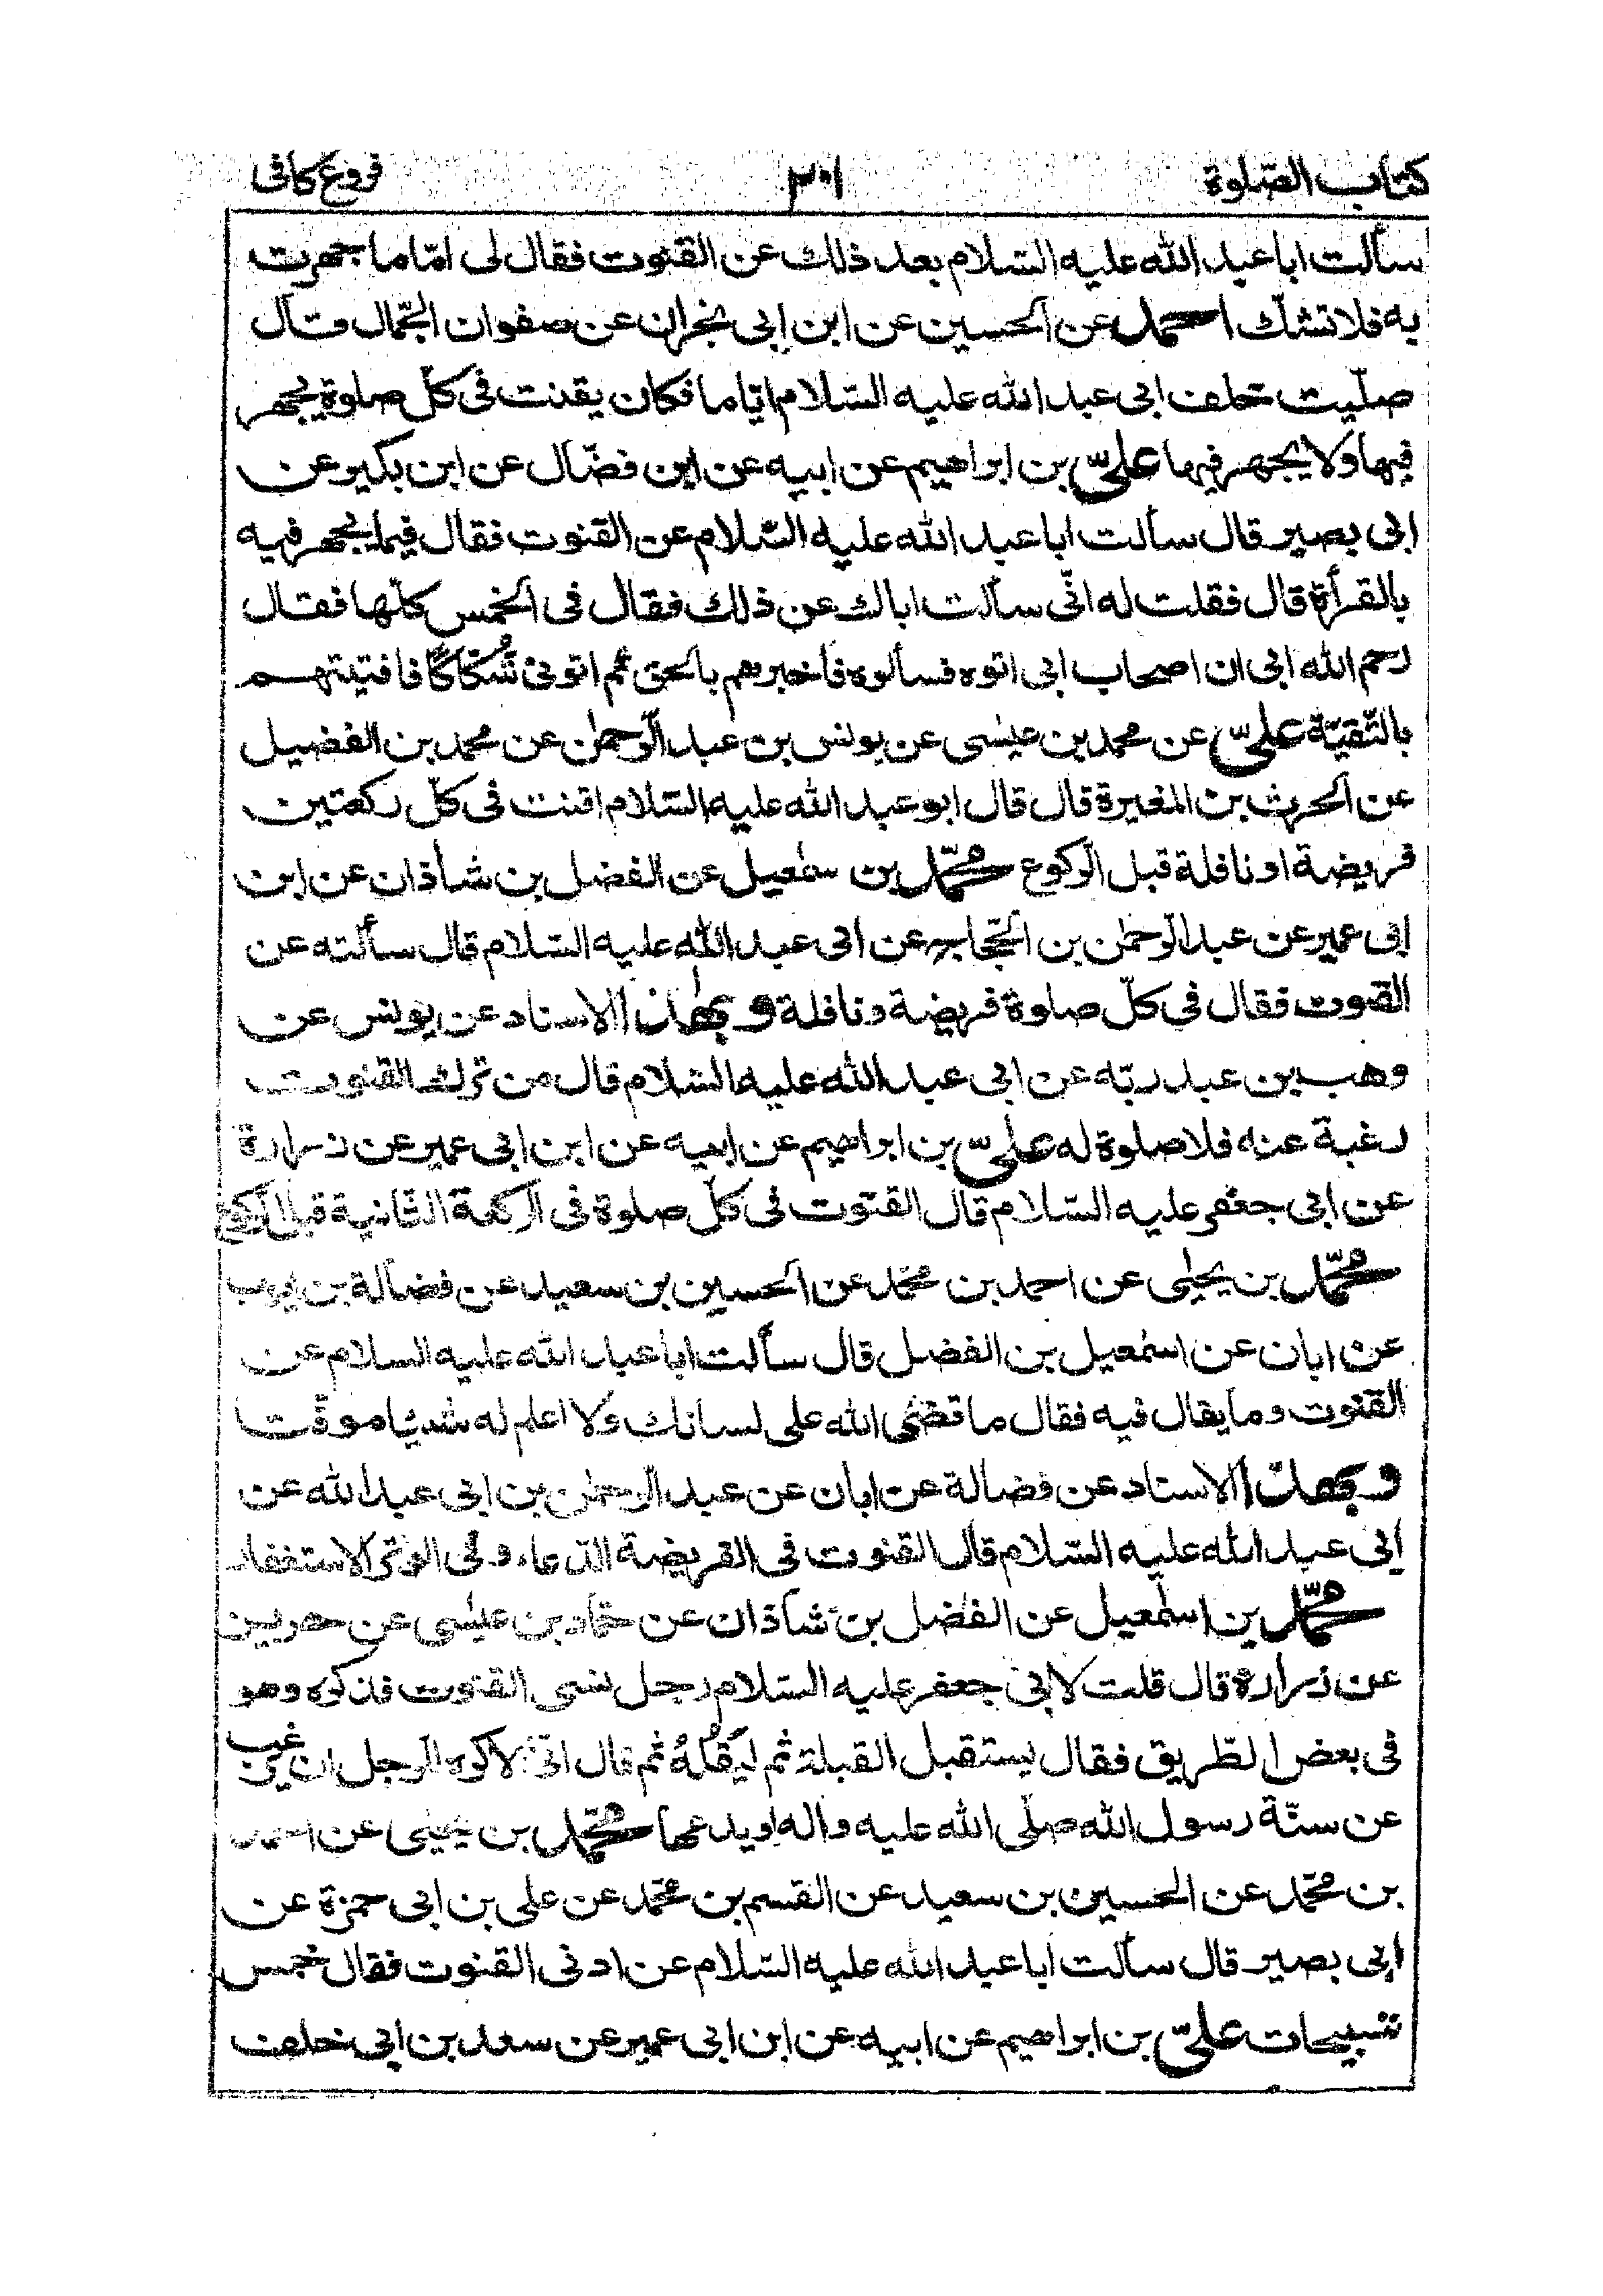 كتاب الصّلوة ٣٠١ فروع كافى
سألت ابا عبد الله عليه السّلام بعد ذلك عن القنوت فقال لى امّا ما جهرت
به فلا تشكّ احمد عن الحسين عن ابن ابى نجران عن صفوان الجّمال قال
صلّيت خلف ابى عبد الله عليه السّلام ايّاما فكان يقنت فى كلّ صلوة يجهر
فيها ولا يجهر فيها علىّ بن ابراهيم عن ابيه عن ابن فضّال عن ابن بكير عن
ابى بصير قال سألت ابا عبد الله عليه السّلام عن القنوت فقال فيما يجهر فيه
بالقرأة قال فقلت له انّى سألت اباك عن ذلك فقال فى الخمس كلّها فقال
رحم الله ابى ان اصحاب ابى اتوه فسألوه فأخبرهم بالحق ثم اتونى شُكّاكًا فافتيتهم
بالتّقيّة علىّ عن محمد بن عيسى عن يونس بن عبد الرّحمٰن عن محمد بن الفضيل
عن الحرث بن المغيرة قال قال ابو عبد الله عليه السّلام اقنت فى كلّ ركعتين
فريضة او نافلة قبل الرّكوع محمّد بن سمٰعيل عن الفضل بن شاذان عن ابن
ابى عمير عن عبد الرّحمٰن بن الحجّاج عن ابى عبد الله عليه السّلام قال سألته عن
القنوت فقال فى كلّ صلوة فريضة ونافلة وبهٰذا الاسناد عن يونس عن
وهب بن عبد ربّه عن ابى عبد الله عليه السّلام قال من ترك القنوت
رغبة عنه فلا صلوة له علىّ بن ابراهيم عن ابيه عن ابن ابى عمير عن زرارة
عن ابى جعفر عليه السّلام قال القنوت فى كلّ صلوة فى الركعة الثّانية قبل الرّكوع
محمّد بن يحيٰى عن احمد بن محمّد عن الحسين بن سعيد عن فضالة بن ايوب
عن ابان عن اسمٰعيل بن الفضل قال سألت ابا عبد الله عليه السلام عن
القنوت وما يقال فيه فقال ما قضى الله على لسانك ولا اعلم له شيئا موقّتا
وبهذا الاسناد عن فضالة عن ابان عن عبد الرّحمٰن بن ابى عبد الله عن
ابى عبد الله عليه السّلام قال القنوت فى الفريضة الدّعاء وفى الوتر الاستغفار
محمّد بن اسمٰعيل عن الفضل بن شاذان عن حمّاد بن عيسٰى عن حريز
عن زرارة قال قلت لابى جعفر عليه السّلام رجل نسى القنوت فذكره وهو
فى بعض الطّريق فقال يستقبل القبلة ثم ليَقُلْهُ ثم قال انّى لاكره للرجل ان يرغب
عن سنّة رسول الله صلّى الله عليه واله او يدعها محمّد بن يحيٰى عن احمد
بن محمّد عن الحسين بن سعيد عن القسم بن محمّد عن على بن ابى حمزة عن
ابى بصير قال سألت ابا عبد الله عليه السّلام عن ادنى القنوت فقال خمس
تسبيحات علىّ بن ابراهيم عن ابيه عن ابن ابى عمير عن سعد بن ابى خلف